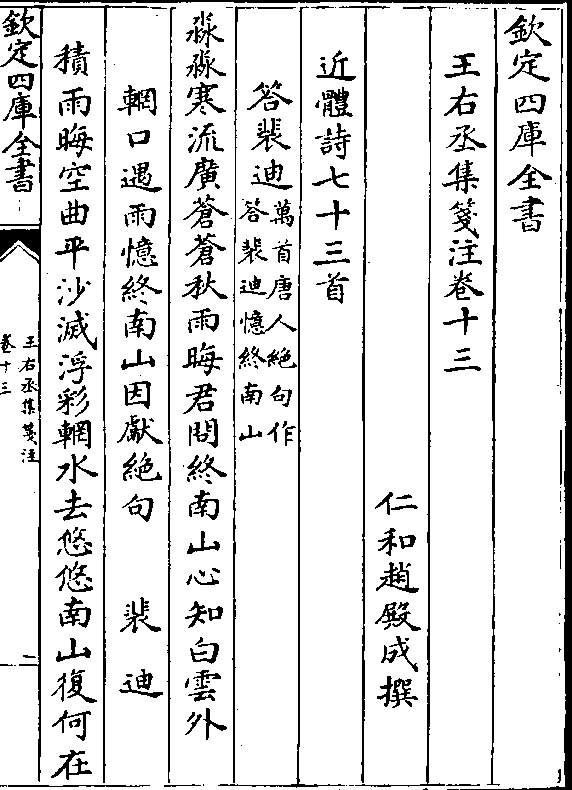 欽定四庫全書
王右丞集箋注卷十三
仁和趙殿成撰
近體詩七十三首
答裴迪萬首唐人絶句作答裴迪憶終南山
淼淼寒流廣蒼蒼秋雨晦君問終南山心知白雲外
輞口遇雨憶終南山因獻絶句　裴迪
積雨晦空曲平沙滅浮彩輞水去悠悠南山復何在
欽定四庫全書
王右丞集箋注
卷十三
一